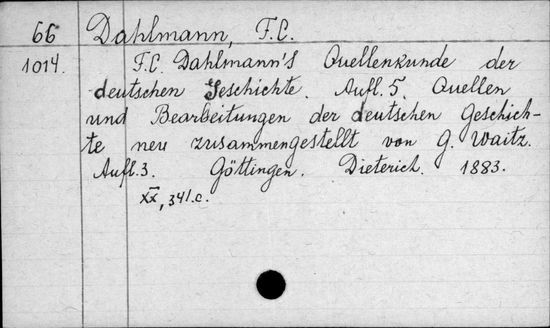 66 Dahlmann, F.C.
1014. F.C. Dahlmann's Quellenkunde der
deutschen Geschichte. Aufl. 5. Quellen
und Bearbeitungen der deutschen Geschich-
te neu zusammengestellt von G. Waitz.
Aufl. 3. Göttingen. Dieterich. 1883.
XX, 341.c.